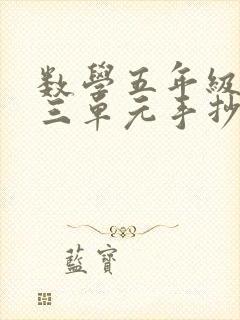 数學五年級
三單元手抄
藍寶